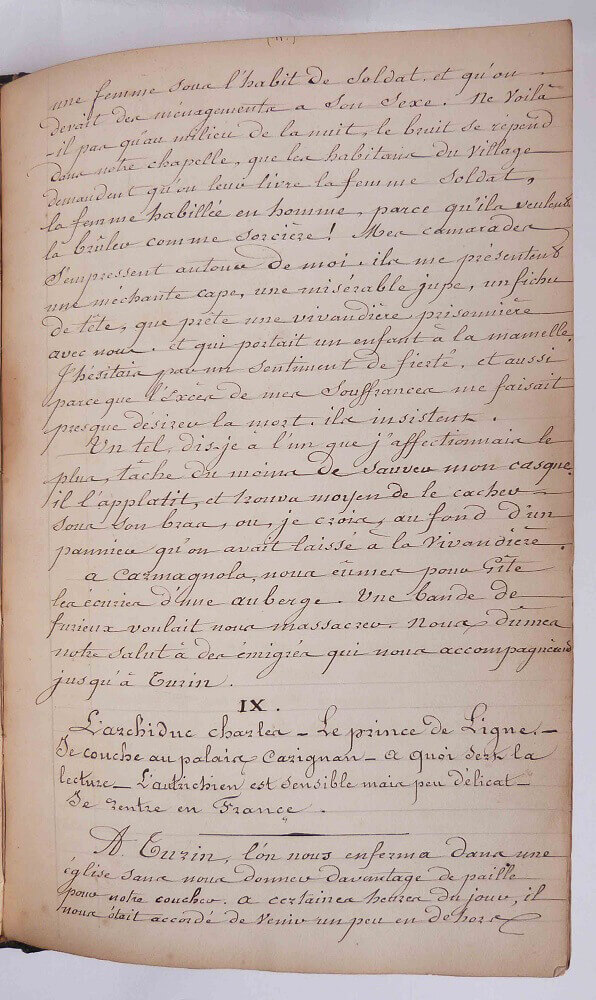 une femme sous l'habit de soldat. et qu'on
devait des ménagements a son sexe. Ne voilà
-t-il pas qu'au milieu de la nuit, le bruit se répend
dans notre chapelle, que les habitans du village
demandent qu'on leur livre la femme soldat,
la femme habillée en homme, parce qu'ils veulent
la brûler comme sorcière! Mes camarades
s'empressent autour de moi. ils me présentent
une méchante cape, une misérable jupe, un fichu
de tête, que prête une vivandière prisonnière
avec nous. et qui portait un enfant à la mamelle.
J'hésitais par un sentiment de fierté, et aussi
parce que l'Excès de mes Souffrances me faisait
presque désirer la mort. ils insistent.
Un tel, dis-je à l'un que j'affectionnais le
plus, tâche du moins de sauver mon casque.
il l'applatit, et trouva moyen de le cacher
sous son bras, ou, je crois, au fond d'un
pannier qu'on avait laissé à la Vivandière.
a Carmagnola, nous eûmes pour Gîte
les écuries d'une auberge. Une bande de
furieux voulait nous massacrer. Nous dûmes
notre salut à des émigrés qui nous accompagnèrent
jusqu'à Turin.
IX.
L'archiduc charles – Le prince de Ligne. –
Je couche au palais Carignan – a quoi sert la
lecture – L'autrichien est sensible mais peu délicat –
Je rentre en France.
A Turin, l'on nous enferma dans une
église sans nous donner davantage de paille
pour notre coucher. a certaines heures du jour, il
nous était accordé de venir un peu en dehors